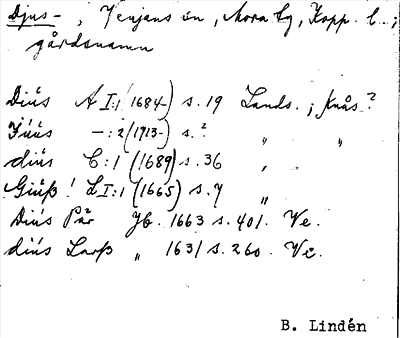 Djus-, Venjans sn, Mora tg, Kopp. l.;
gårdsnamn
Diús A I:1 (1684) s. 19 Lands.; Knås?
Júús —:2 (1913-) s.? „ „
diús C:1 (1689) s. 36 „
Giúß! L I:1 (1665) s. 7 „
Diús Pär Jb. 1663 s. 401. Ve.
diús Larß „ 1631 s. 260. Ve.
B. Lindén